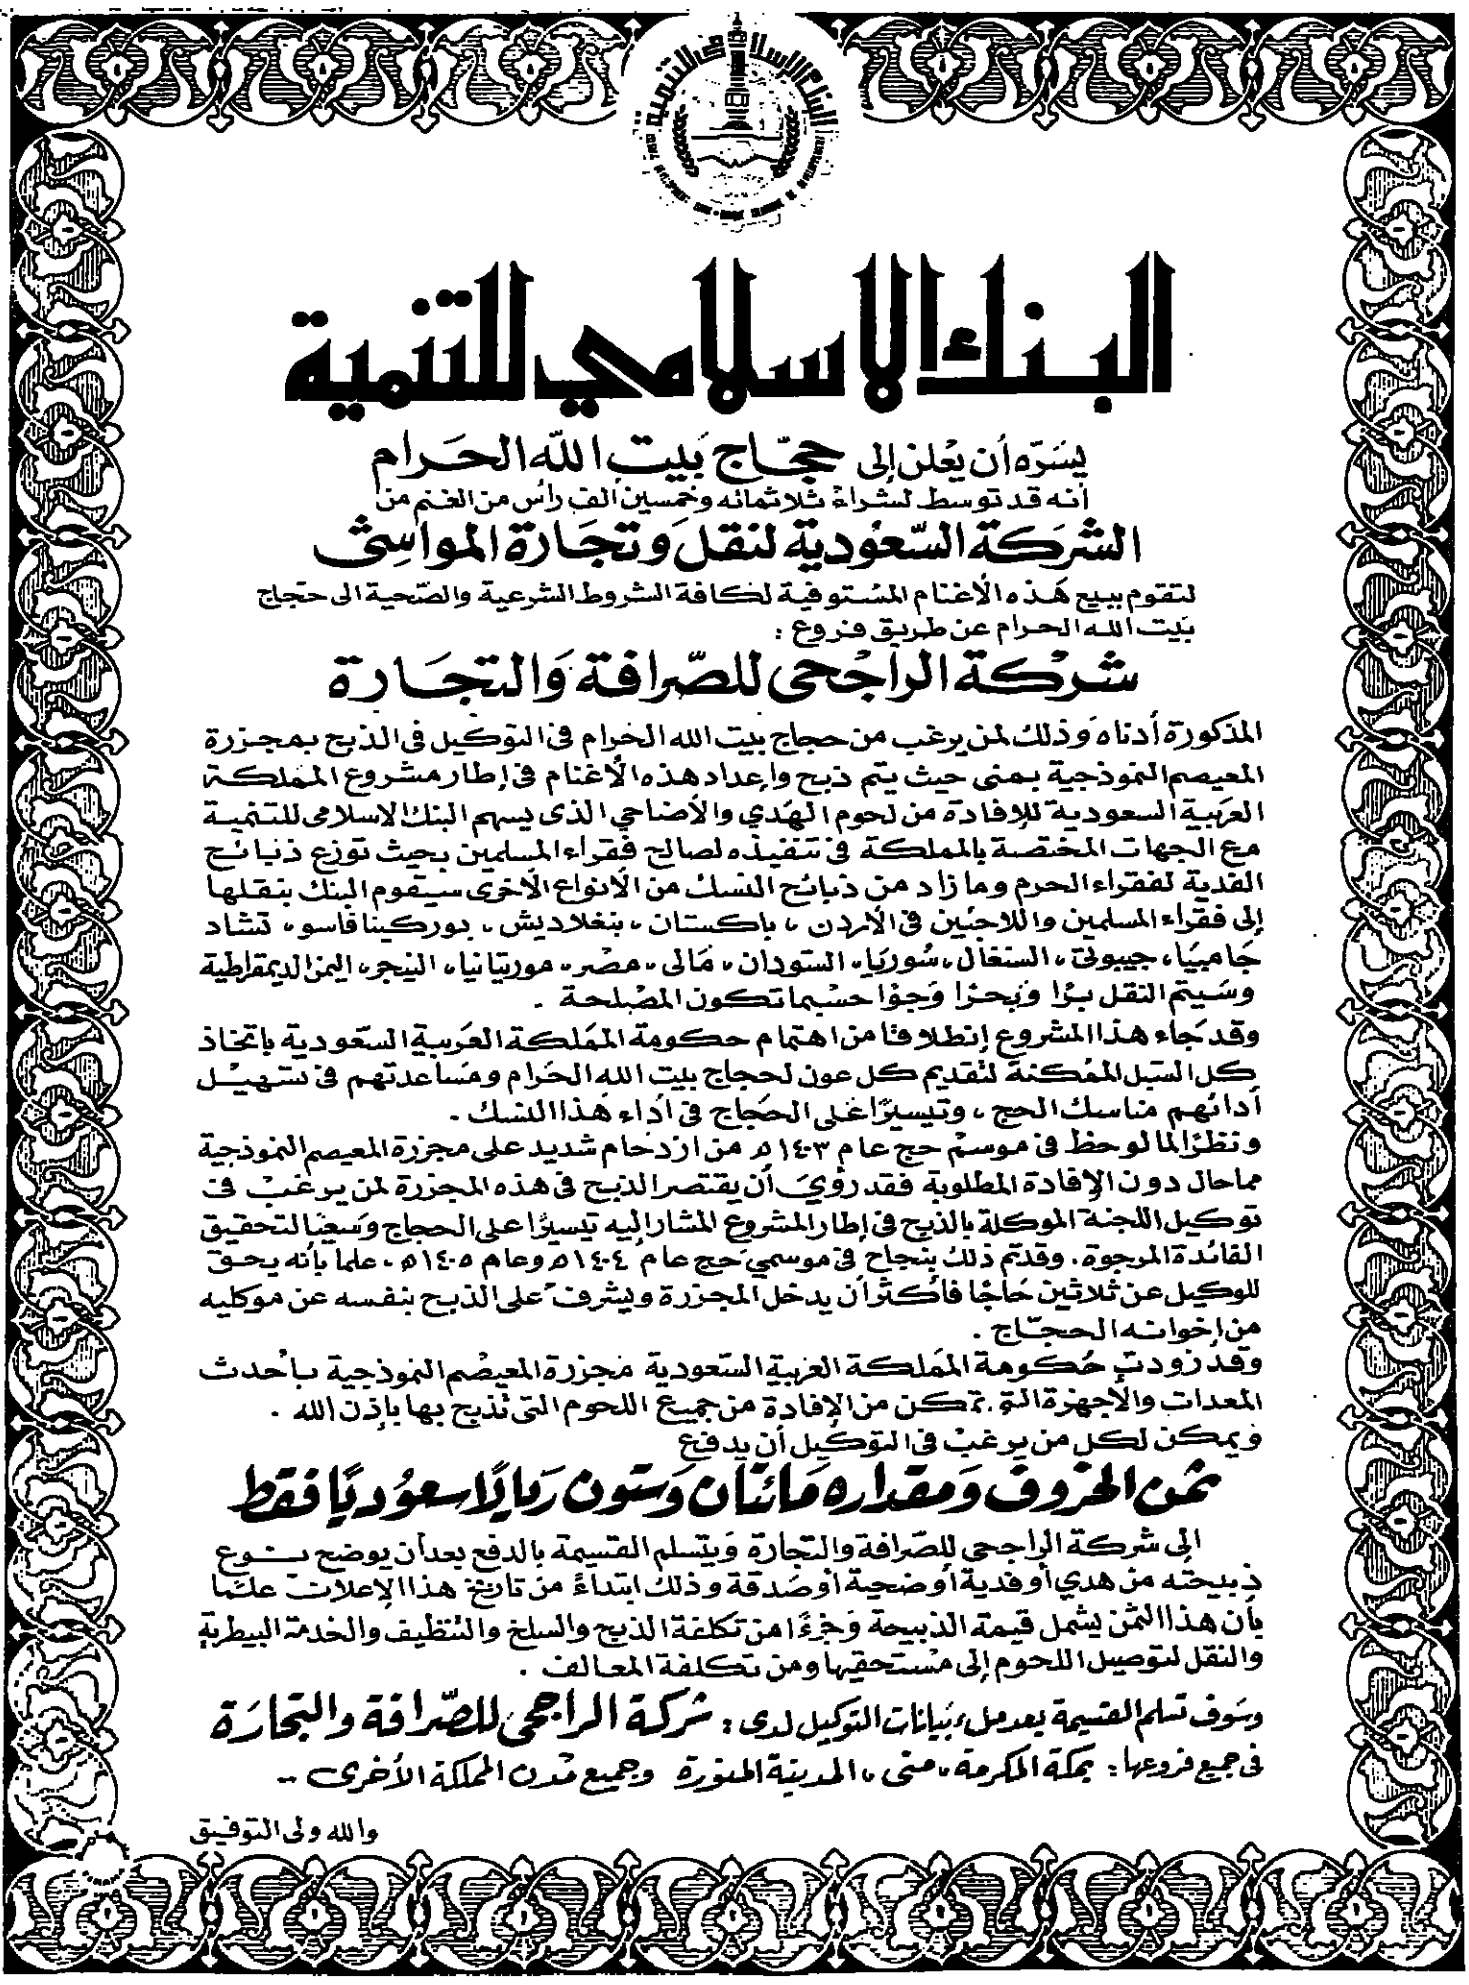 البنك الاسلامي للتنمية
البنك الاسلامي للتنمية
يسَرّه أن يعْلن إلى حجّاج بَيت الله الحَرام
أنه قد توسط لشراء ثلاثمائه وخمسين الف رأس من الغنم من
الشركة السّعودية لنقل وتجَارة المواشى
لتقوم ببيع هَذه الأغنام المسُتوفية لكافة الشروط الشرعية والصّحية الى حجاج
بَيت الله الحرام عن طريق فروع :
شركة الراجحى للصّرافة وَالتجَارة
المذكورة أدناه وَذلك لمن يرغب من حجاج بيت الله الحَرام فى التوكيل فى الذبح بمجزرة
المعيصم النموذجية بمنى حيث يتم ذبح وإعداد هذه الأغنام فى إطار مشروع المملكة
العربية السعودية للإفادة من لحوم الهَدي والأضاحي الذى يسهم البنك الاسلامى للتنمية
مع الجهات المختصة بالمملكة فى تنفيذه لصالح فقراء المسلمين بحيث توزع ذبائح
الفدية لفقراء الحرم وما زاد من ذبائح النسك من الأنواع الأخرى سيقوم البنك بنقلها
إلى فقراء المسلمين واللاجئين فى الأردن ، باكستان ، بنغلاديش ، بوركينا فاسو ، تشاد
جَامبيَا ، جيبوتى ، السنغال ، سُوريَا ، السّودان ، مَالى ، مصْر ، موريتانيا ، النيجر ، اليمن الديمقراطية
وسَيتم النقل برًا وَبحرًا وَجوًا حسبما تكون المصْلحة .
وقد جَاء هذا المشروع إنطلاقا من اهتمام حكومة المَملكة العَربية السّعودية باتخاذ
كل السّبل الممْكنة لتقديم كل عون لحجاج بيت الله الحَرام ومسَاعدتهم فى تسهيل
أدائهم مناسك الحج ، وتيسيرًا على الحجَاج فى أداء هَذا النسك .
ونظرًا لما لوحظ فى موسم حج عام ١٤٠٣ه من ازدحام شديد على مجزرة المعيصم النموذجية
مما حال دون الإفادة المطلوبة فقد رؤيَ أن يقتصر الذبح فى هذه المجزرة لمن يرغب فى
توكيل اللجنة الموكلة بالذبح فى إطار المشروع المشار إليه تيسيرًا على الحجاج وسَعيًا لتحقيق
الفائدة المرجوة . وقد تم ذلك بنجاح فى موسمي حج عام ١٤٠٤ه وعام ١٤٠٥ه ، علما بأنه يحق
للوكيل عن ثلاثين حَاجًا فأكثر أن يدخل المجزرة ويشرف على الذبح بنفسه عن موكليه
من إخوانه الحجّاج .
وقد زودت حُكومة المَملكة العَربية السّعودية مجزرة المعيصم النموذجية بأحدث
المعدات والأجهزة التى تمكن من الإفادة من جميع اللحوم التى تذبح بها بإذن الله .
ويمكن لكل من يرغب فى التوكيل أن يدفع
ثمن الخروف وَمقداره مَائتان وَستون رَيالًا سعوُديًا فقط
إلى شركة الراجحى للصّرافة والتجارة وَيتسلم القسيمة بالدفع بعد أن يوضح نوع
ذبيحته من هدي أو فدية أو ضحية أو صَدقة وذلك ابتداءً من تاريخ هذا الإعلان علمًا
بأن هذا الثمن يشمل قيمة الذبيحة وَجزءًا من تكلفة الذبح والسلخ والتنظيف والخدمة البيطرية
والنقل لتوصيل اللحوم إلى مسْتحقيها ومن تكلفة المعالف .
وسَوف تسلم القسيمة بعد ملء بَيانات التوكيل لدى : شركة الراجحى للصّرافة والتجارَة
فى جميع فروعها : بمكة المكرمة ، منى ، المدينة المنورة وجميع مدن المملكة الأخرى ..
والله ولى التوفيق